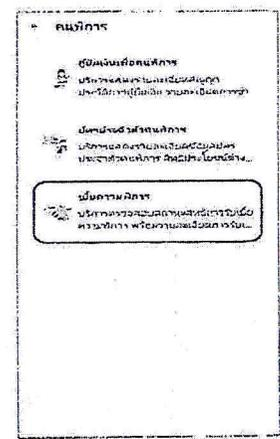 คนพิการ
กู้ยืมเงินเพื่อคนพิการ
บริการแสดงรายละเอียดสัญญา
ประวัติการกู้ยืมเงิน รายละเอียดการชำ
บัตรประจำตัวคนพิการ
บริการแสดงรายละเอียดข้อมูลบัตร
ประจำตัวคนพิการ สิทธิประโยชน์ต่าง...
เบี้ยความพิการ
บริการตรวจสอบสถานะสิทธิการรับเบี้ย
ความพิการ พร้อมรายละเอียดการรับเ...